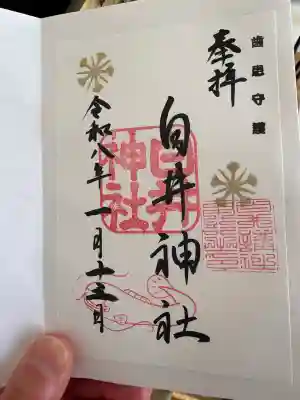 歯患守護
奉拝
白井神社
白井
神社
令和八年一月十三日